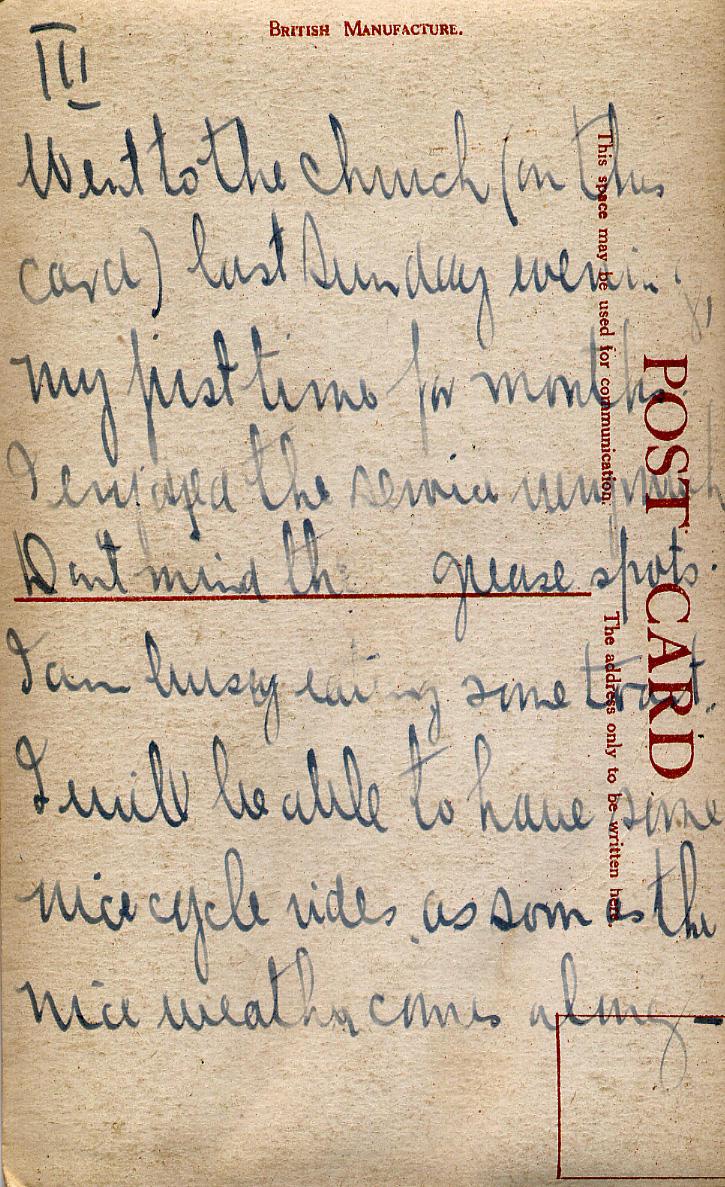 BRITISH MANUFACTURE.
III
Went to the church (on this
card) last Sunday evening
my first time for months
I enjoyed the service very much
Don't mind the grease spots.
I am busy eating some toast.
I will be able to have some
nice cycle rides as soon as the
nice weather comes along —
POST CARD
This space may be used for communication.
The address only to be written here.